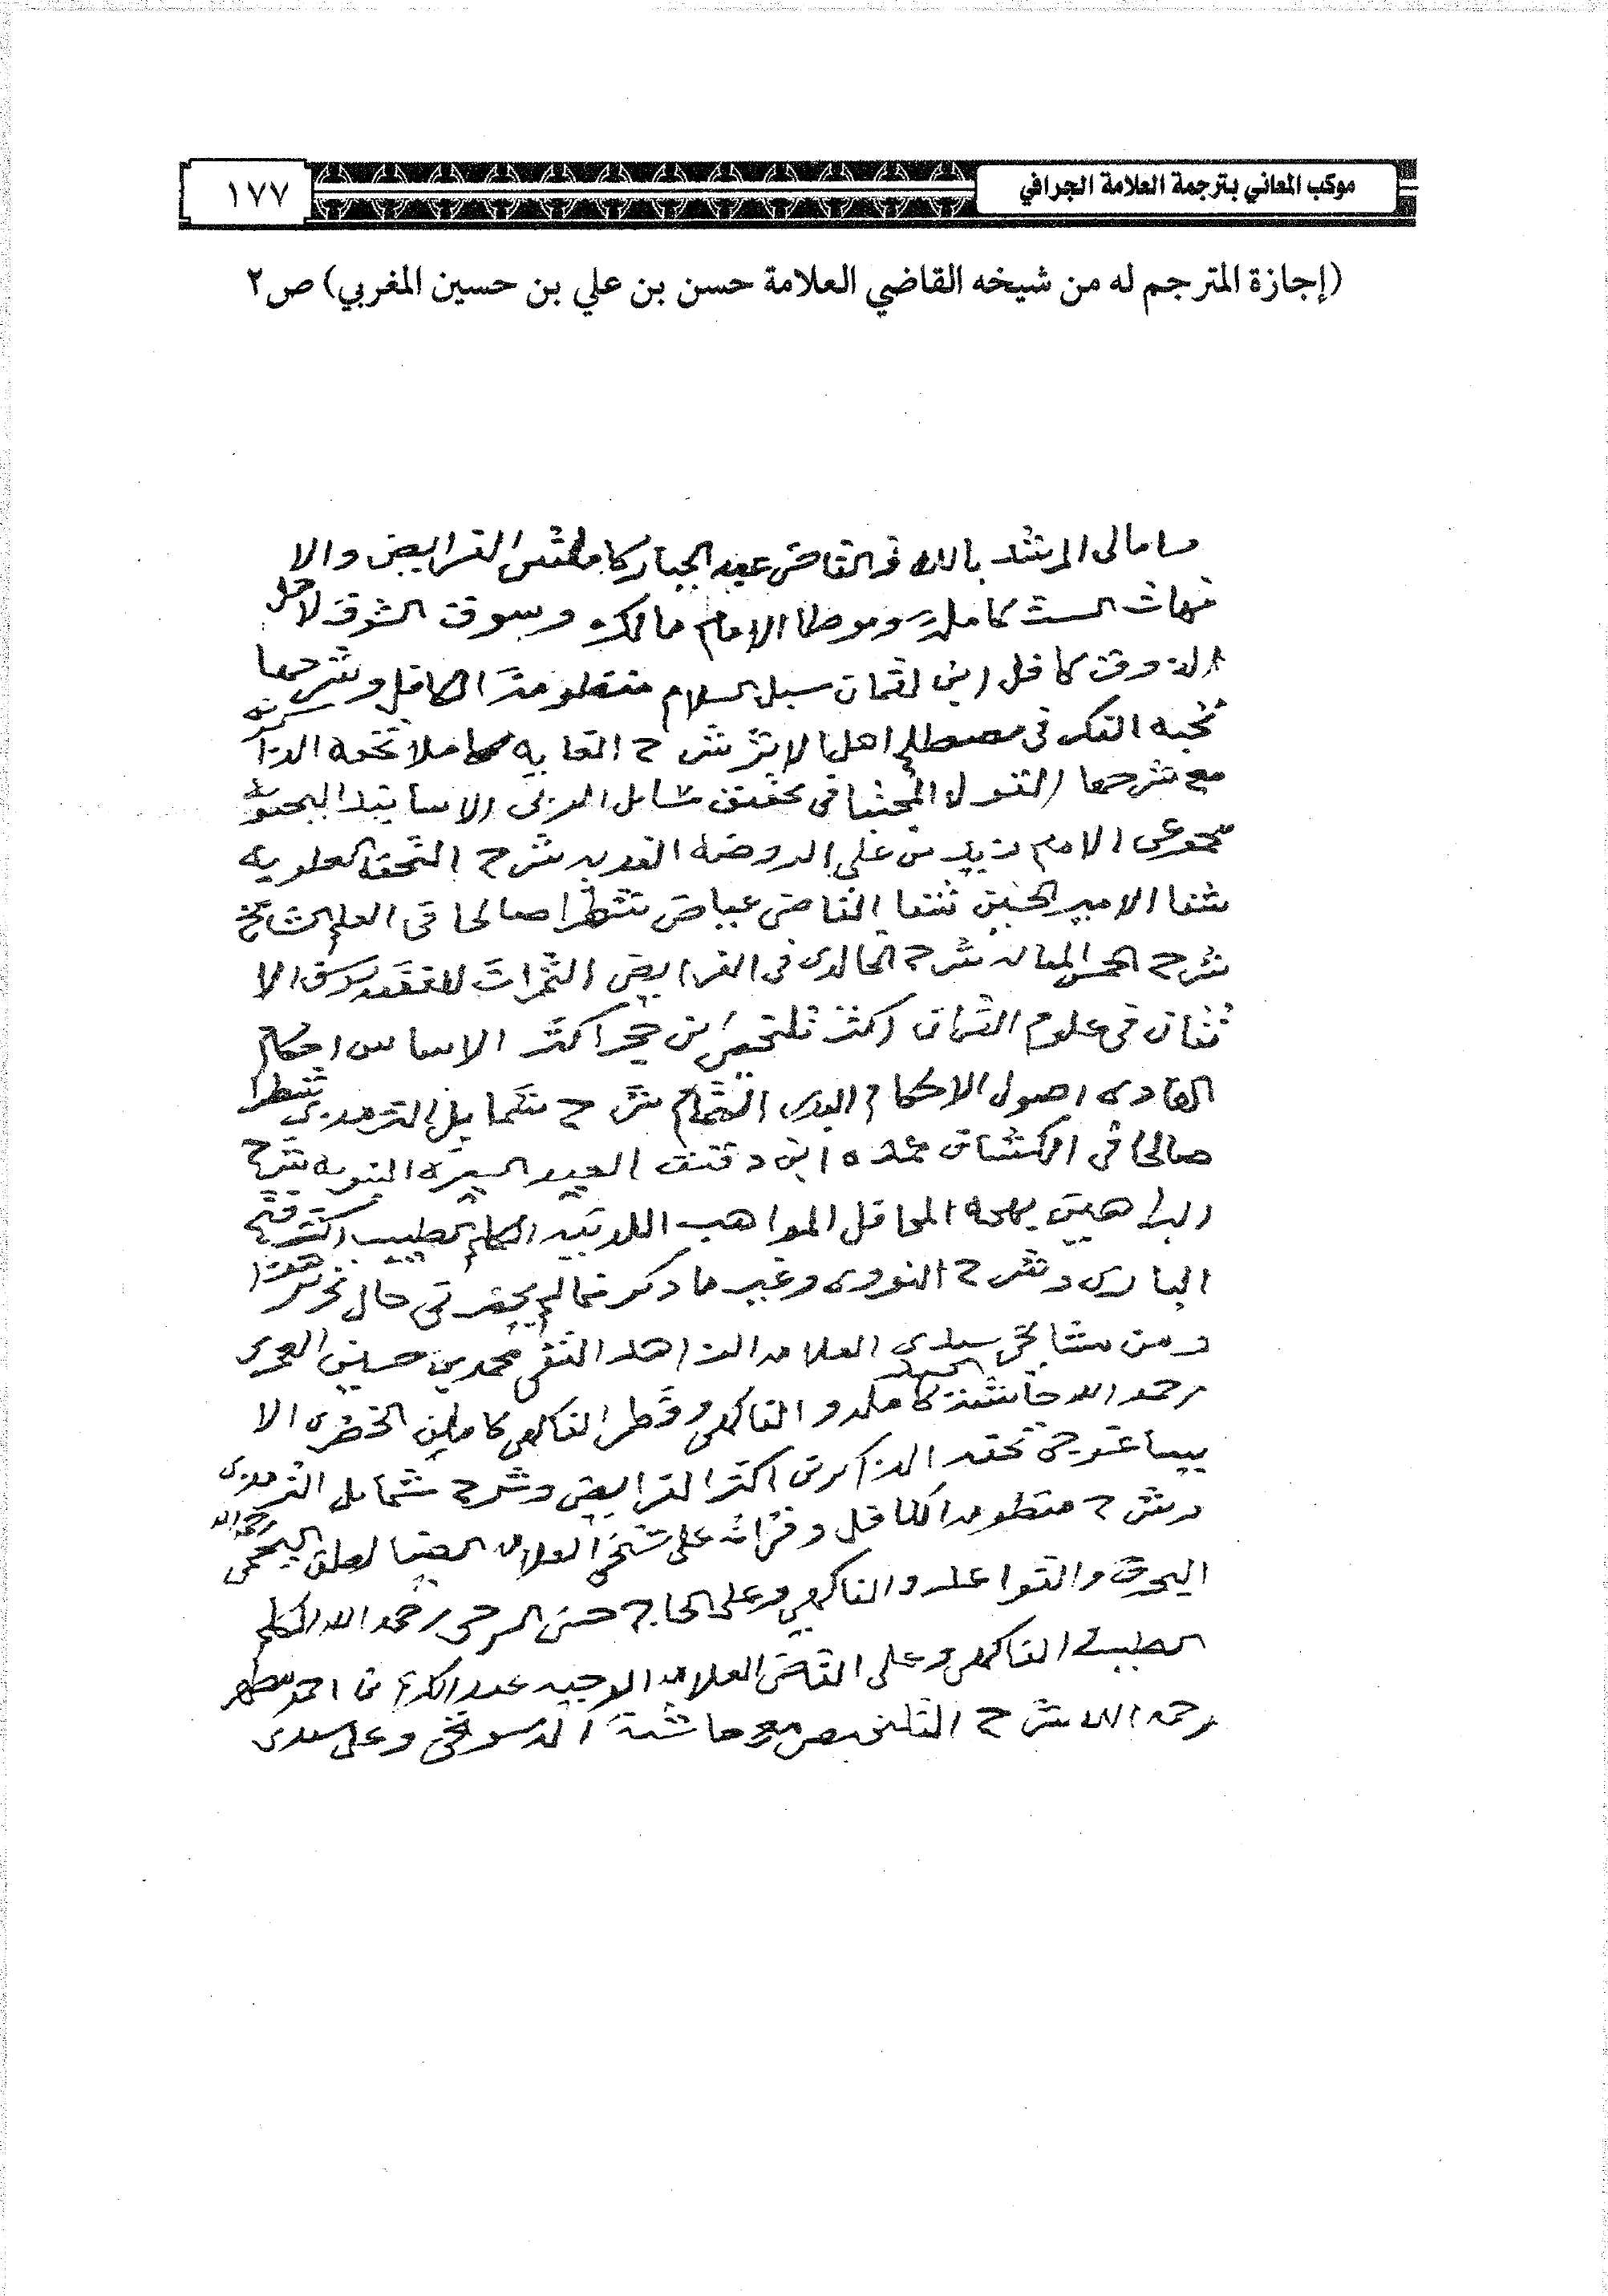 موكب المعاني بترجمة العلامة الجرافي
١٧٧
(إجازة المترجم له من شيخه القاضي العلامة حسن بن علي بن حسين المغربي) ص٢
امالى المرشد بالله القاضى عبد الجبار الفرايض والا
مهات الست كاملة وموطا الامام مالك وسوق الشوق لاهل
الذوق كافل ابن لقمان سبل السلام منظومة الكافل وشرحها
نخبة الفكر فى مصطلح اهل الاثر شرح الغايه كاملا
مع شرحها الاسانيد اليحيويه
مجموعى الامام زيد بن علي الروضه النديه شرح التحفه العلويه
شفا الامير الحسين شفا القاضى عياض شطرا صالحا فى العلم الشامخ
شرح شرح الخالدى فى الفرايض الثمرات للفقيه يوسف الا
تقان فى علوم القران اكثر تلخيص ابن حجر اكثر الاساس احكام
الهادى اصول الاحكام البدر التمام شرح شمايل الترمدى شطرا
صالحا فى الكشاف عمدة ابن دقيق العيد السيرة النبويه شرح
البراهين بهجة المحافل المواهب اللدنيه الكلم الطيب اكثر فتح
البارى وشرح النووى وغير ما ذكر مما لم يحضر فى حال تحرير هذا
ومن مشايخى سيدى العلامه الزاهد التقى محمد بن حسين العمرى
رحمه الله والفاكهى وقطر الفاكهى كاملين الخضرى الا
يساغوجى اكثر الفرايض وشرح شمايل الترمدى
وشرح منظومه الكافل وقرات على شيخى العلامه رحمه الله
البحرق والقواعد والفاكهي وعلى الحاج حسن رحمه الله الكلم
الطيب الفاكهى وعلى القاضى العلامه الوجيه عبد الكريم بن احمد مطهر
رحمه الله شرح التلخيص مع حاشية الدسوقى وعلى سيدى